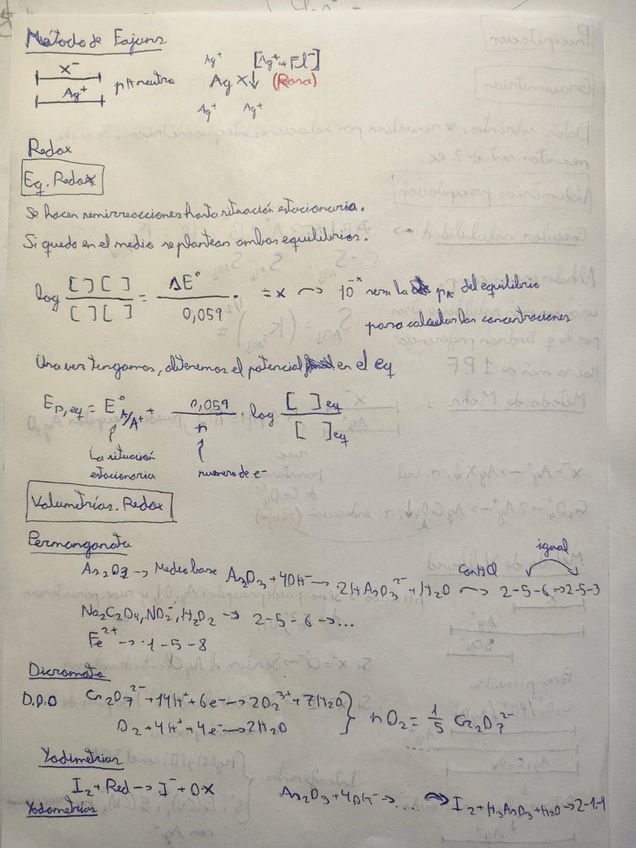 Método de Fajans
X⁻
Ag⁺
pH neutro
Ag⁺ [Ag⁺ + Fl⁻]
AgX↓ (Rosa)
Ag⁺ Ag⁺
Redox
Eq. Redox
Se hacen semirreacciones hasta situación estacionaria.
Si queda en el medio se plantean ambos equilibrios.
log [ ][ ] / [ ][ ] = ΔE° / 0,059 · = x → 10⁻ˣ sera la del equilibrio
para calcular las concentraciones
Una vez tengamos, obtenemos el potencial en el eq
E P,eq = E° A/A⁺ + 0,059 / n · log [ ]eq / [ ]eq
La situación estacionaria
numero de e⁻
Volumetrías. Redox
Permanganato
As₂O₃ → Medio base As₂O₃ + 4OH⁻ → 2HAsO₃²⁻ + H₂O → con HCl 2-5-6 → 2-5-3
igual
Na₂C₂O₄, NO₂⁻, H₂O₂ → 2-5-6 → ...
Fe²⁺ → 1-5-8
Dicromato
D.Q.O Cr₂O₇²⁻ + 14H⁺ + 6e⁻ → 2Cr³⁺ + 7H₂O
O₂ + 4H⁺ + 4e⁻ → 2H₂O
} n O₂ = 1/5 Cr₂O₇²⁻
Yodimetrias
I₂ + Red → I⁻ + OX
As₂O₃ + 4OH⁻ → ... ⇒ I₂ + H₃AsO₃ + H₂O → 2-1-4
Yodometrías